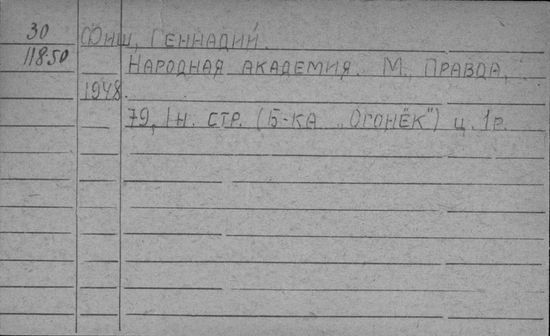 30
11850
Фиш, Геннадий.
Народная академия. М., Правда,
1948.
79, 1 н. стр. (Б-ка „Огонёк") ц. 1 р.